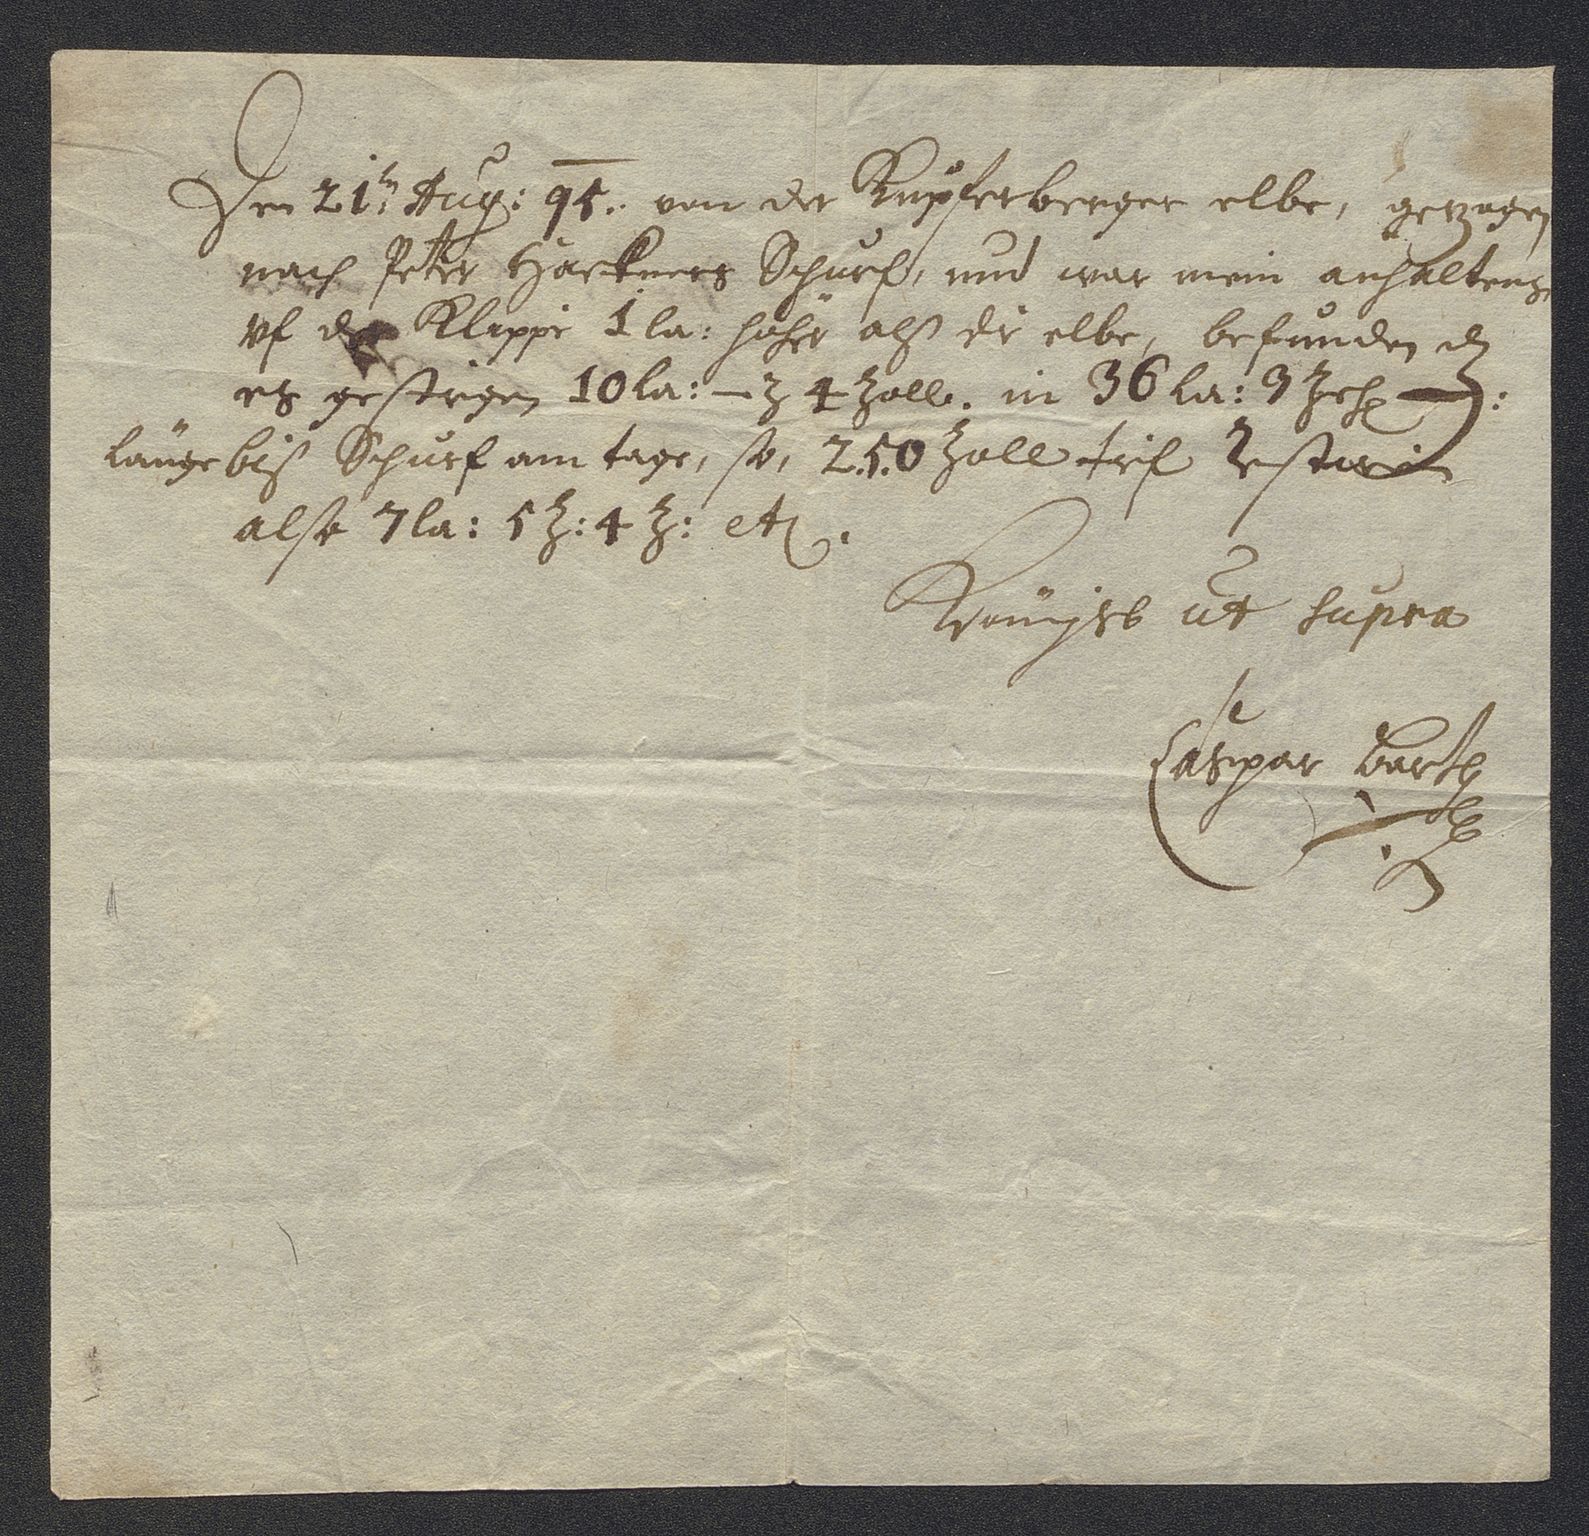 Den 21t. Aug: 95. von der Kupferberger elbe, gezogen
nach Peter Hackners Schurf, und war mein anhaltens
vf der Kleppe 1 la: höher alß die elbe, befunden dz
es gestigen 10 la: — z 4 Zoll. in 36 la: 9 Zeh :
länge biß Schurf am tage, so, 250 Zoll
also 7 la: 5 Z: 4 Z: etc.
ut supra
Caspar Barth